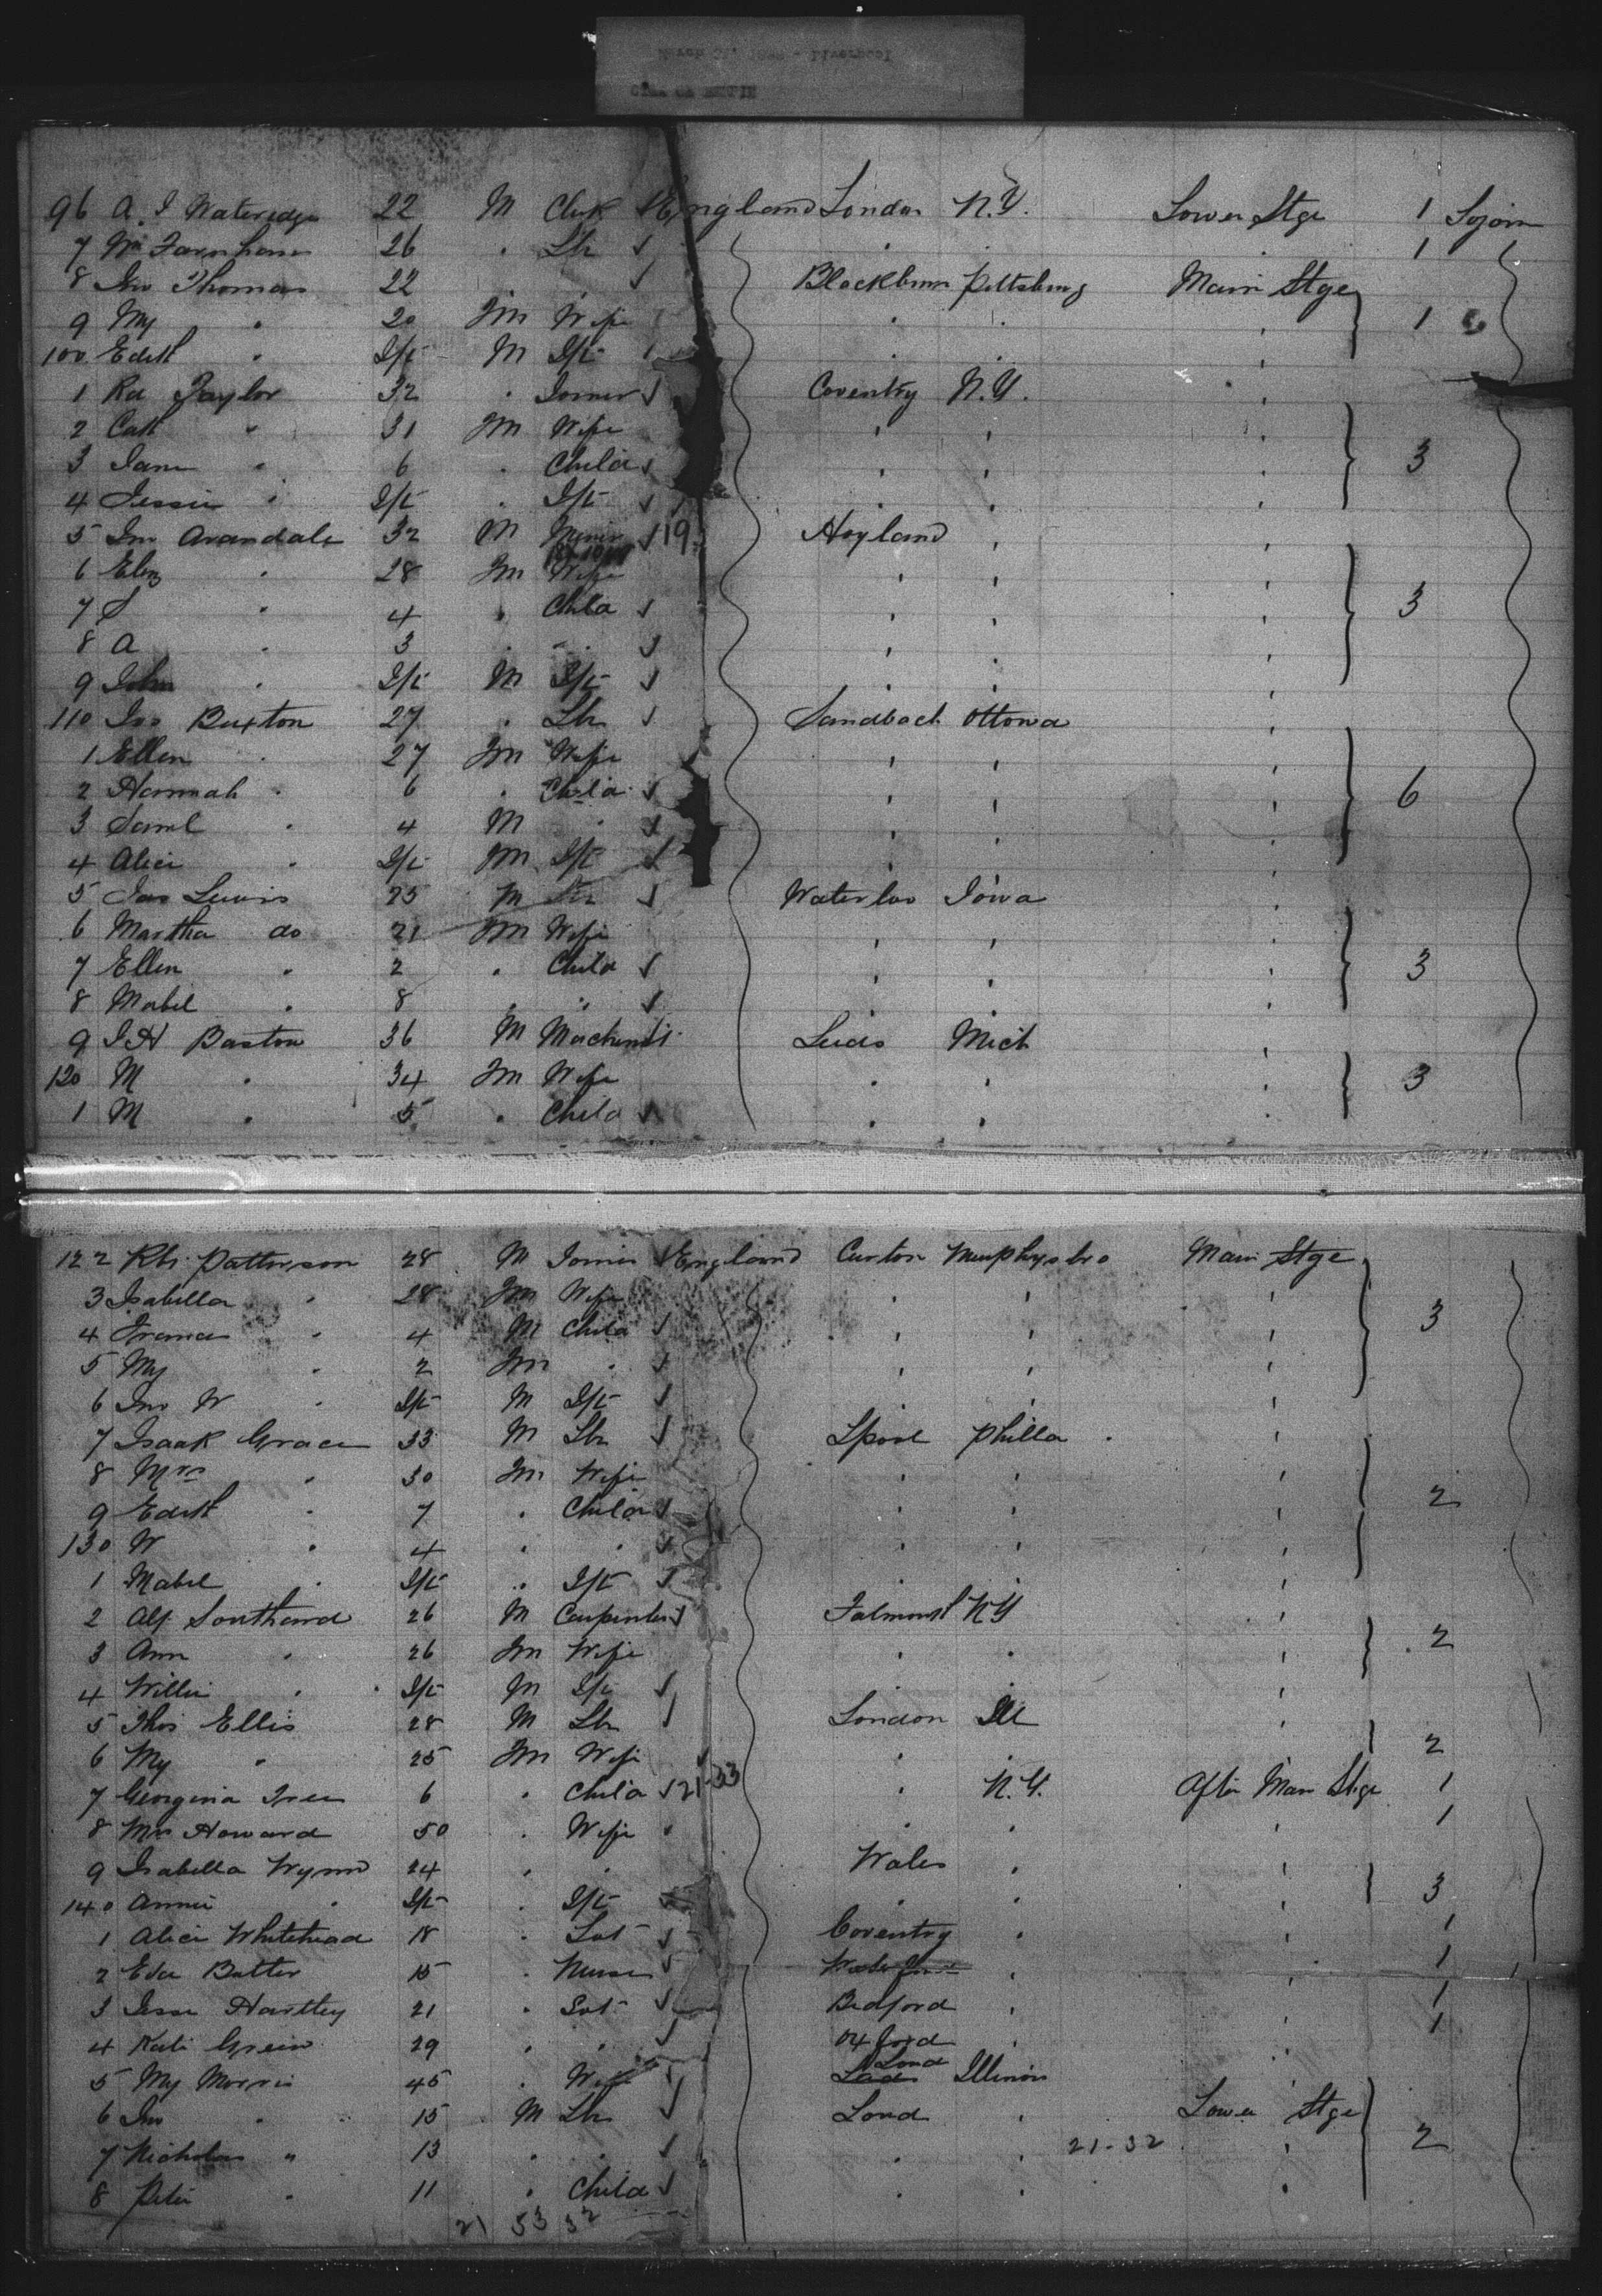 96 A. J Wateredge 22 M Clerk England London N.Y. Lower Stge 1 Sojorn
7 Wm Farnham 26 " Lbr " " " 1
8 Jno Thomas 22 Blackburn Pittsburg Main Stge
9 My " 20 Fm Wife " " " 1
100 Edith " Ift M Ift " " "
1 Rd Taylor 32 " Joiner Coventry N.Y. "
2 Cath " 31 Fm Wife " " "
3 Jane " 6 " Child " " " 3
4 Jessie " Ift " Ift " " "
5 Jno Arandale 32 M Miner 19 Hoyland " "
6 Eliz " 28 Fm Wife " " "
7 S " 4 " Child " " " 3
8 A " 3 " " " " "
9 John " Ift M Ift " " "
110 Jos Buxton 27 " Lbr Sandbach Ottowa
1 Ellen " 27 Fm Wife " " "
2 Hannah " 6 " Child " " " 6
3 Saml " 4 M " " " "
4 Alice " Ift Fm Ift " " "
5 Jas Lewis 25 M Lbr Waterloo Iowa "
6 Martha do 21 Fm Wife " " "
7 Ellen " 2 " Child " " " 3
8 Mabel " 8 " " " " "
9 J H Baston 36 M Machinist Leeds Mich "
120 M " 34 Fm Wife " " " 3
1 M " 5 " Child " " "
122 Rbt Patterson 28 M Joiner England Curton Murphysbro Main Stge
3 Isabella " 28 Fm Wife " " "
4 Francis " 4 M Child " " " 3
5 My " 2 Fm " " " "
6 Jno W " Ift M Ift " " "
7 Isaak Grace 33 M Lbr Lpool Philla "
8 Mrs " 30 Fm Wife " " "
9 Edith " 7 " Child " " " 2
130 W " 4 " " " " "
1 Mabel " Ift " Ift "
2 Alf Southard 26 M Carpenter Falmouth NY "
3 Ann " 26 Fm Wife " " " 2
4 Willie " Ift M Ift " " "
5 Thos Ellis 28 M Lbr London Ill "
6 My " 25 Fm Wife " " " 2
7 Georgina Tree 6 " Child 21-33 " N.Y. After Main Stge 1
8 Mrs Howard 50 " Wife " " " 1
9 Isabella Wynn 24 " " Wales " "
140 Annie " Ift " Ift " " " 3
1 Alice Whitehead 18 " Svt Coventry " " 1
2 Eda Butter 15 " Nurse " " 1
3 Jesse Hartley 21 " Svt Bedford " " 1
4 Kate Green 29 " " Oxford " " 1
5 My Morris 45 " Wife Lond Illinois "
6 Jno " 15 M Lbr Lond " Lower Stge
7 Nicholas " 13 " " " " 21-32 " 2
8 Peter " 11 " Child " " "
21 53 32